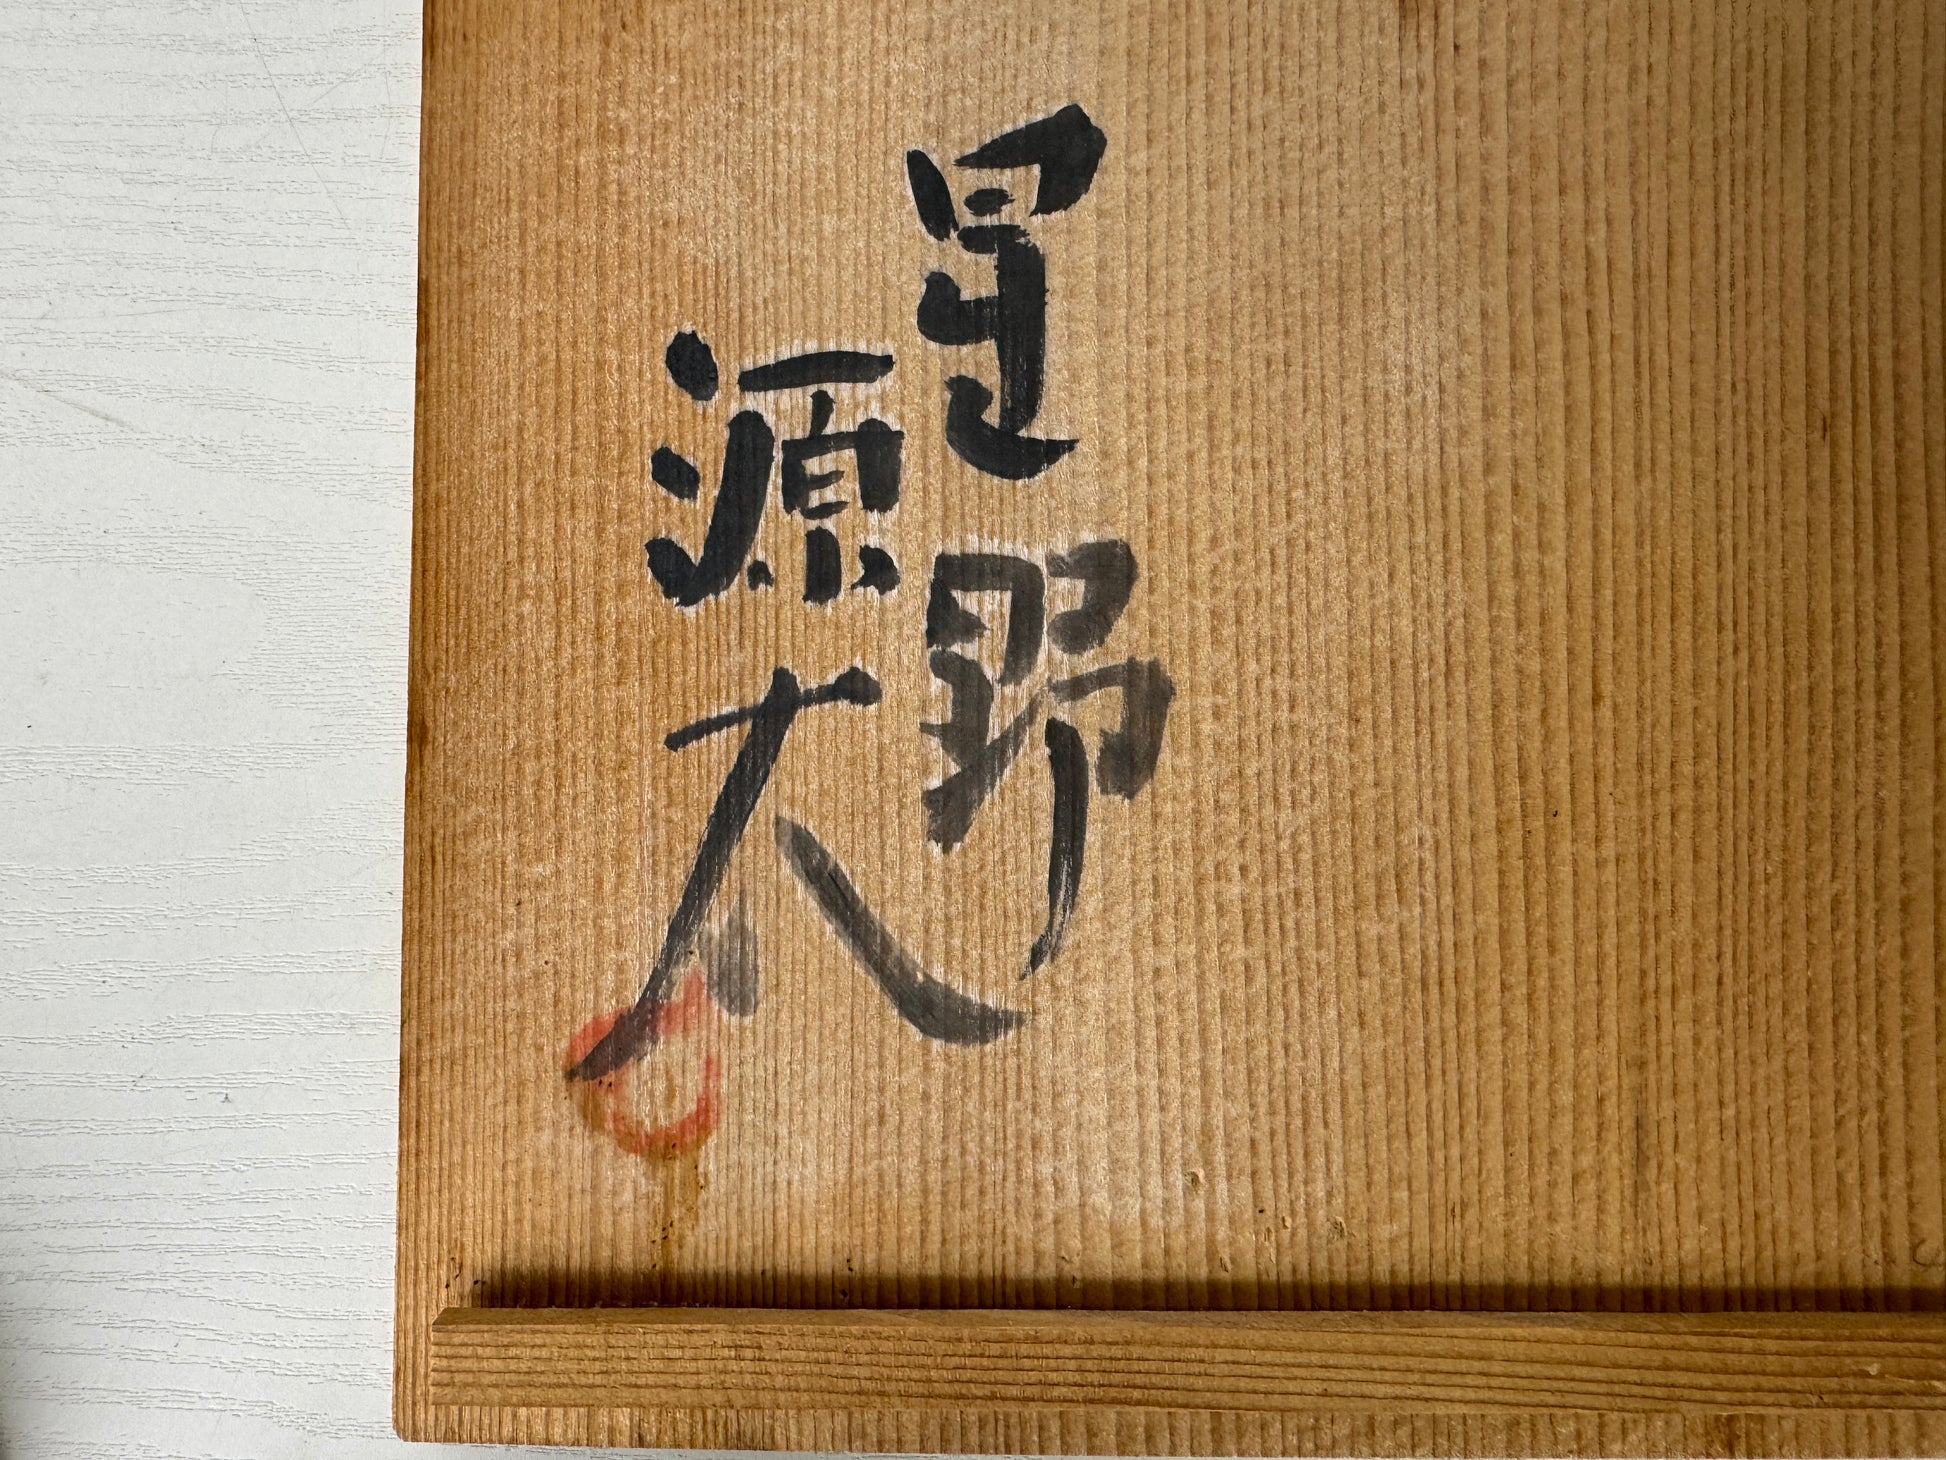 星野
源太